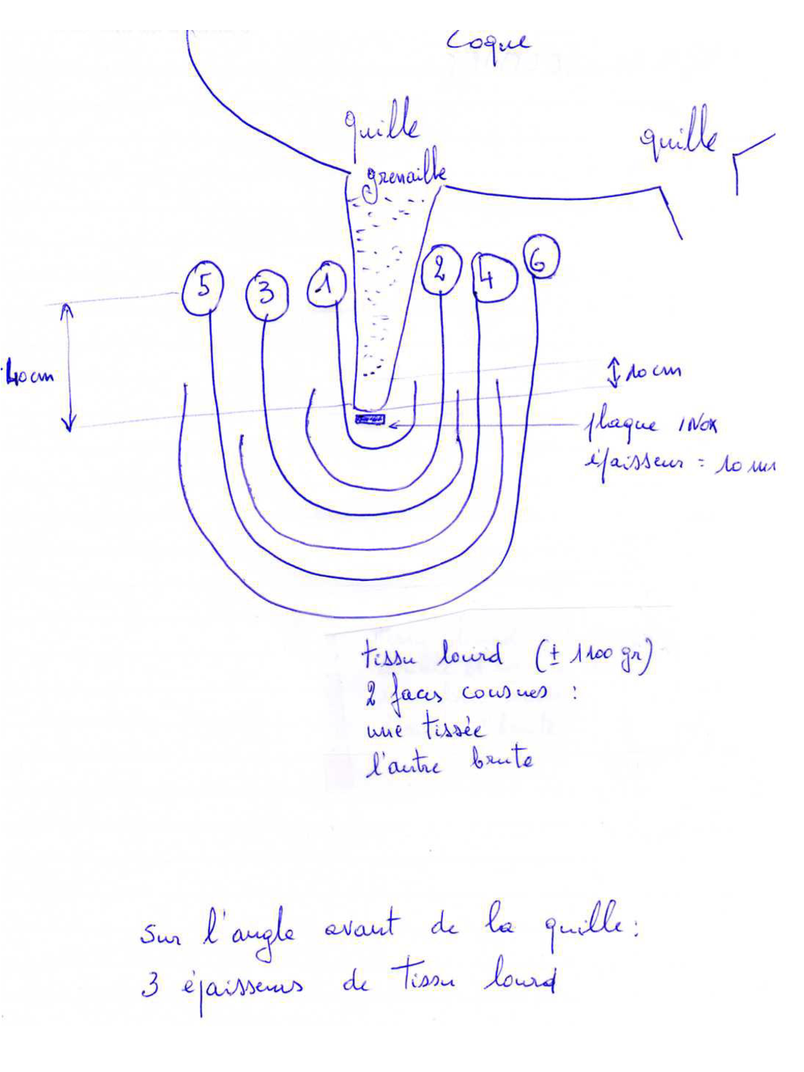 coque
quille
quille
grenaille
5
3
1
2
4
6
40cm
10 cm
plaque INOX
épaisseur = 10 mm
tissu lourd (± 1100 gr)
2 faces cousues :
une tissée
l'autre brute
sur l'angle avant de la quille :
3 épaisseurs de tissu lourd